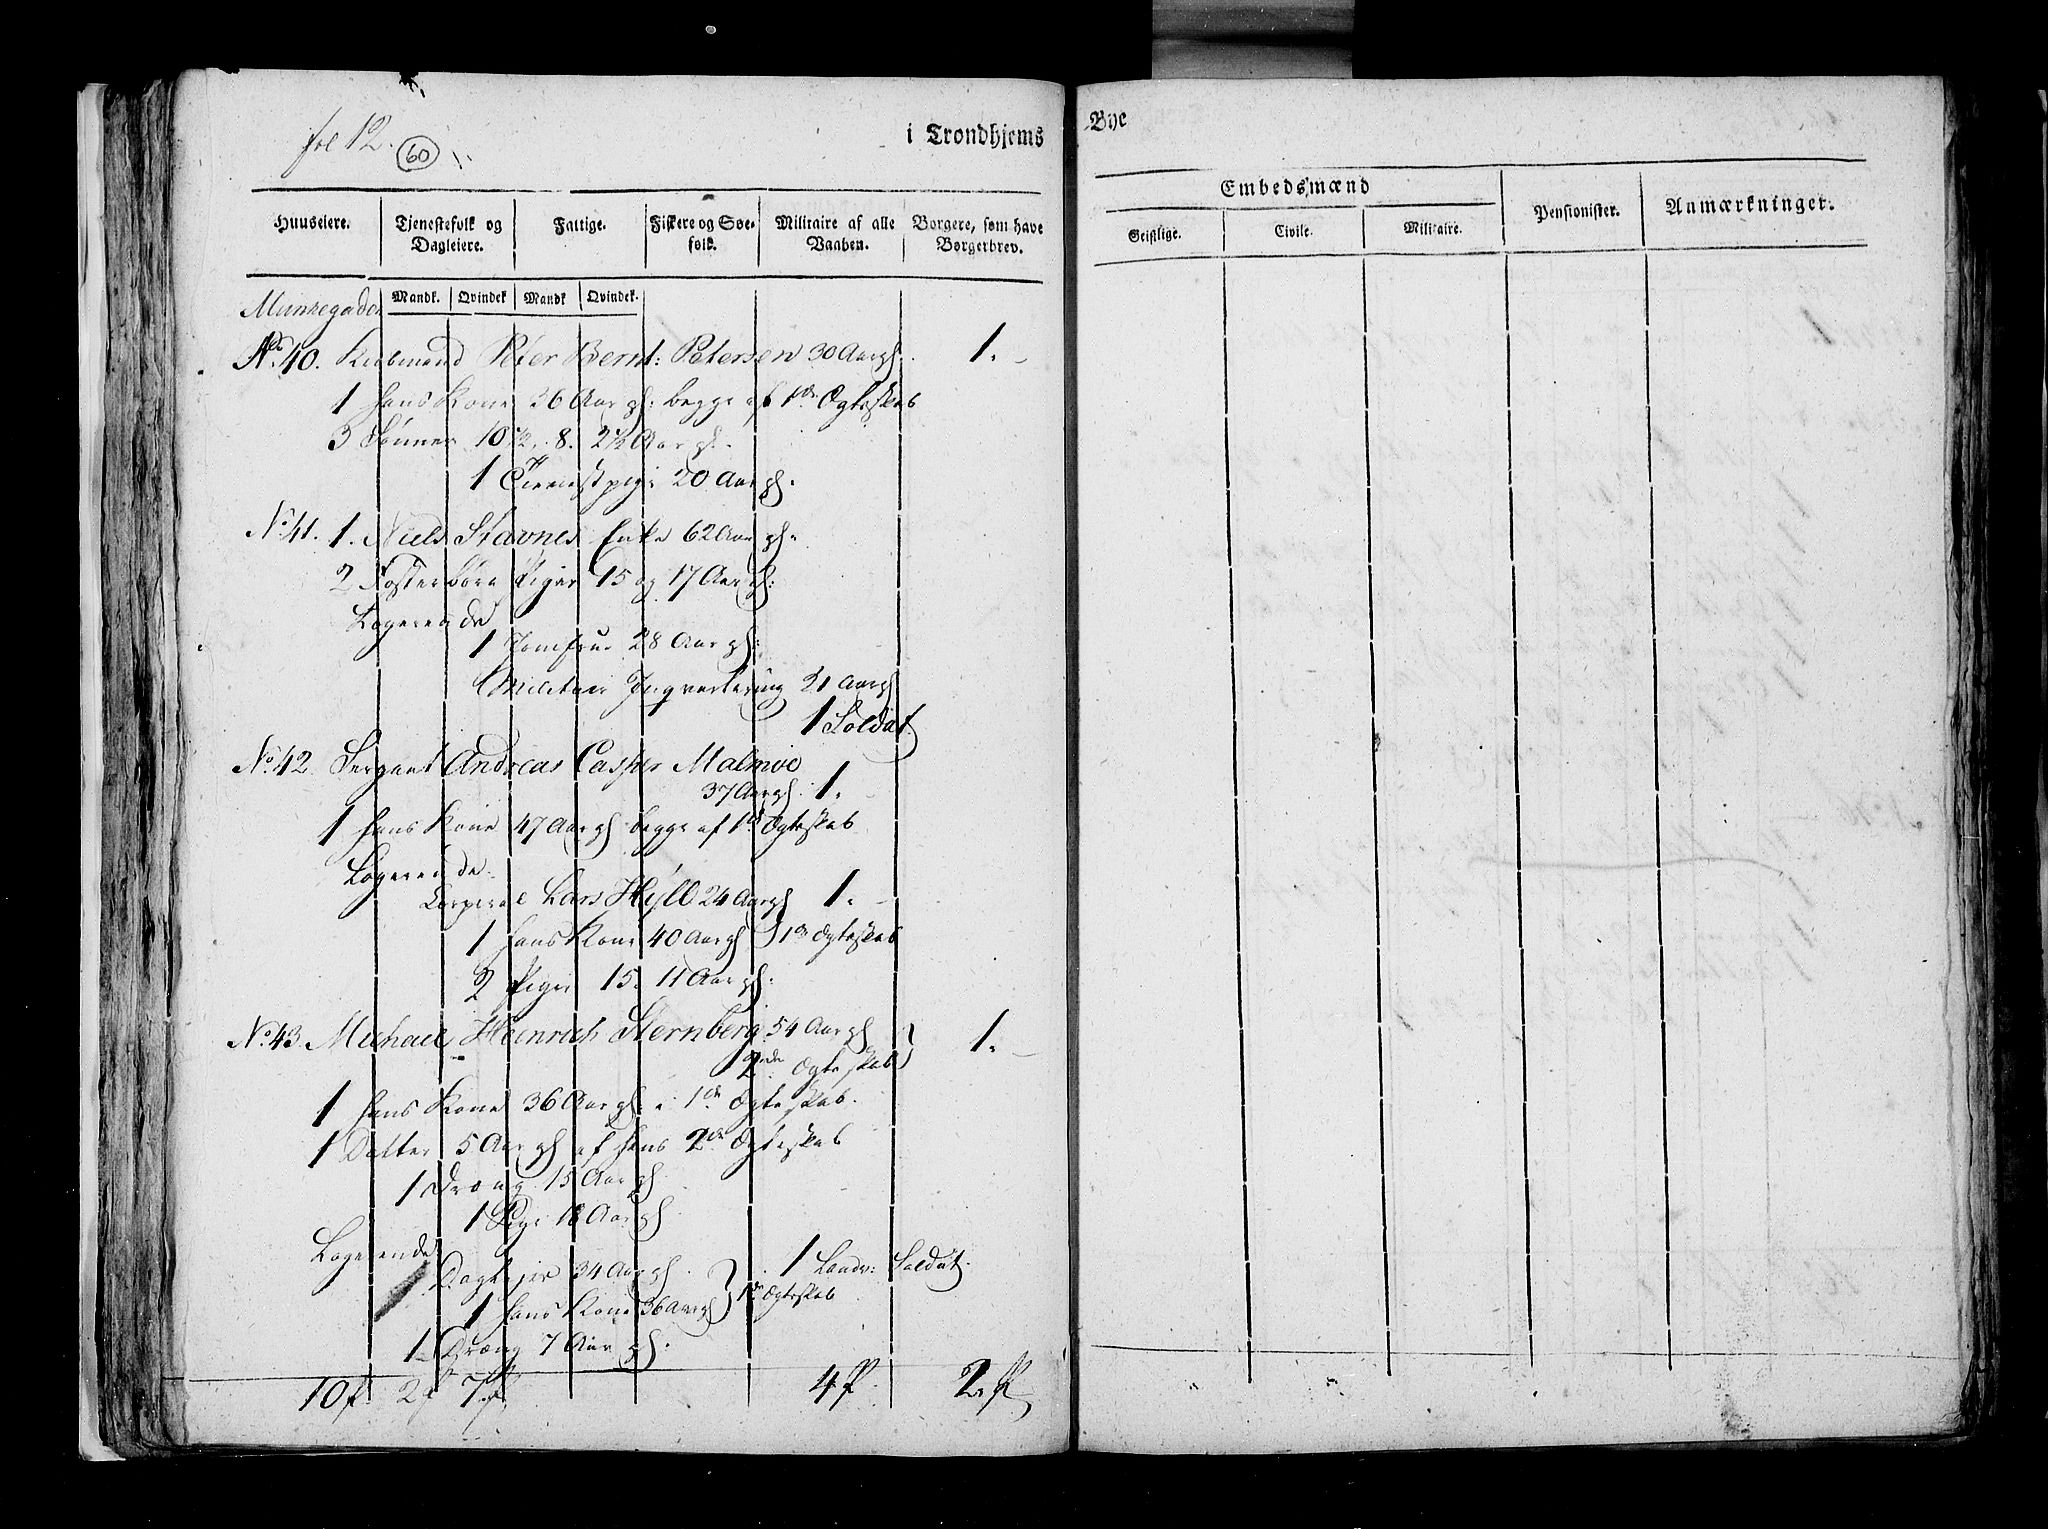 fol 12.
60
i Trondhjems
Huuseiere. Tjenestefolk og Dagleiere. Fattige. Fiskere og Søefolk. Militaire af alle Vaaben. Borgere, som have Borgerbrev.
Mandk. Qvindek Mandk Qvindek.
Munkegaden
No. 40. Kiøbmand Peter Bernt: Petersen 30 Aar gl. 1.
1 hans Kone 36 Aar gl: begge af 1de Ægteskab
3 Sønner 10 1/2. 8. 2 1/2 Aar gl.
1 Tienestpige 20 Aar gl.
No. 41. 1. Niels Stavnes Enke 62 Aar gl.
2 Fosterbørn Piger 15 og 17 Aar gl:
Logerende
1 Jomfrue 28 Aar gl:
Militair Inqvartering 21 Aar gl
1 Soldat
No. 42. Sergant Andreas Casper Malmoe
37 Aar gl. 1.
1 hans Kone 47 Aar gl begge af 1de Ægteskab
Logerende
Corporal Lars Hyll 24 Aar gl 1.
1 hans Kone 40 Aar gl } 1de Ægteskab
2 Piger 15. 11 Aar gl:
No. 43. Michael Heinrich Sternberg 54 Aar gl } 1.
2den Ægteskab
1 hans Kone 36 Aar gl i 1de Ægteskab.
1 Datter 5 Aar gl af hans 2de Ægteskab
1 Dreng 15 Aar gl.
1 Pige 18 Aar gl.
Logerende
Daglejer 34 Aar gl. } 1 Landv: Soldat.
1 hans Kone 36 Aar gl 1de Ægteskab
1 Dræng 7 Aar gl.
10 P. 2 P 7 P. 4 P. 2. P
Bye
Embedsmænd
Geistlige. Civile. Militaire. Pensionister. Anmærkninger.